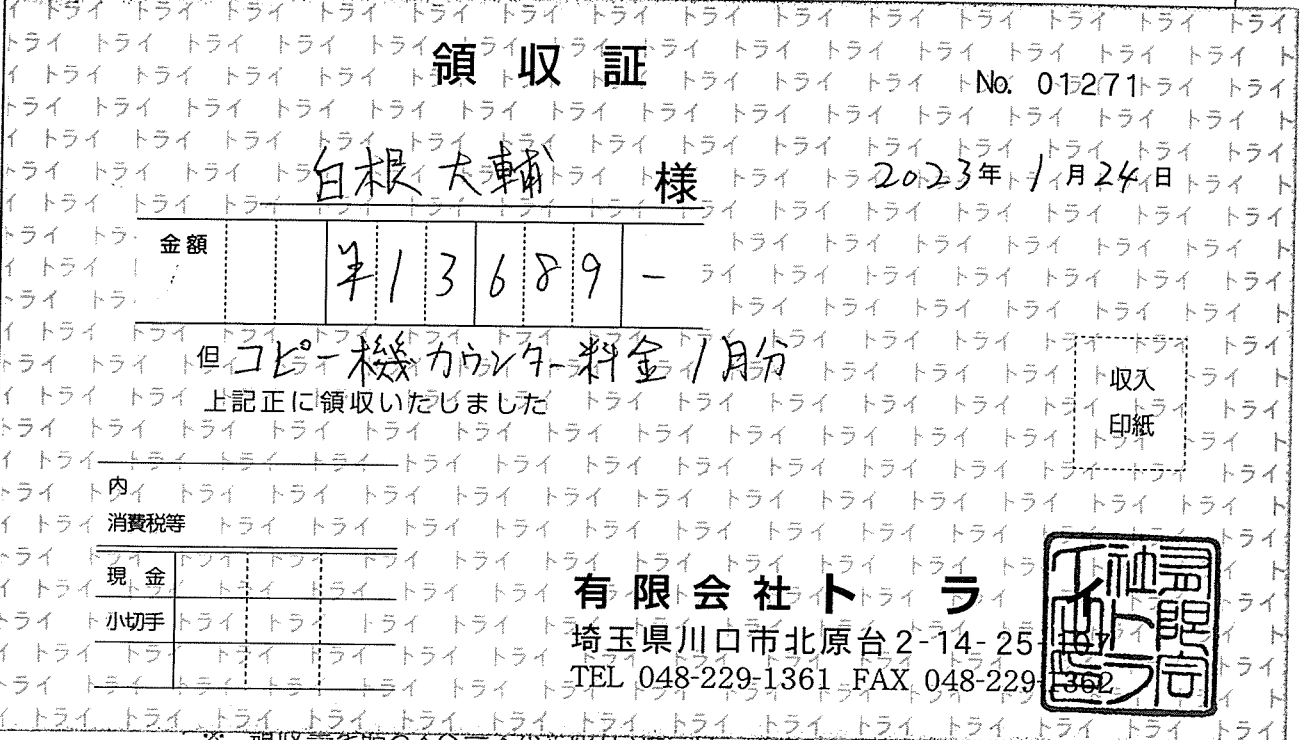 領収証
No. 01271
白根 大輔 様
2023年 1月24日
金額 ¥13689-
但 コピー機カウンター料金1月分
上記正に領収いたしました
収入
印紙
内
消費税等
現金
小切手
有限会社トライ
埼玉県川口市北原台2-14-25-107
TEL 048-229-1361 FAX 048-229-1362